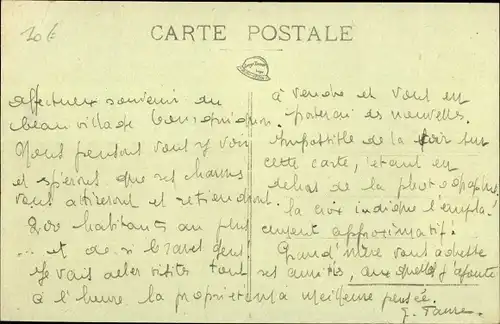 20 €
CARTE POSTALE
affectueux souvenir du
beau village
Nous pensons vous y voir
et espérons que ses charmes
vous attireront et retiendront.
200 habitants au plus
... et de si braves gens.
Je vais aller visiter tout
à l'heure la propriété
à vendre et vous en
porterai des nouvelles.
Impossible de la voir sur
cette carte, étant en
dehors de la photographie
la croix indique l'empla-
cement approximatif.
Grand'mère vous adresse
ses amitiés, auxquelles j'ajoute
meilleure pensée.